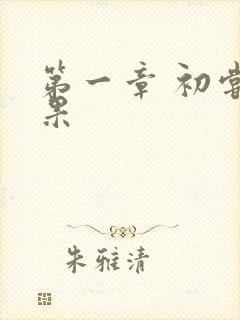 第一章 初尝
果
朱雅清